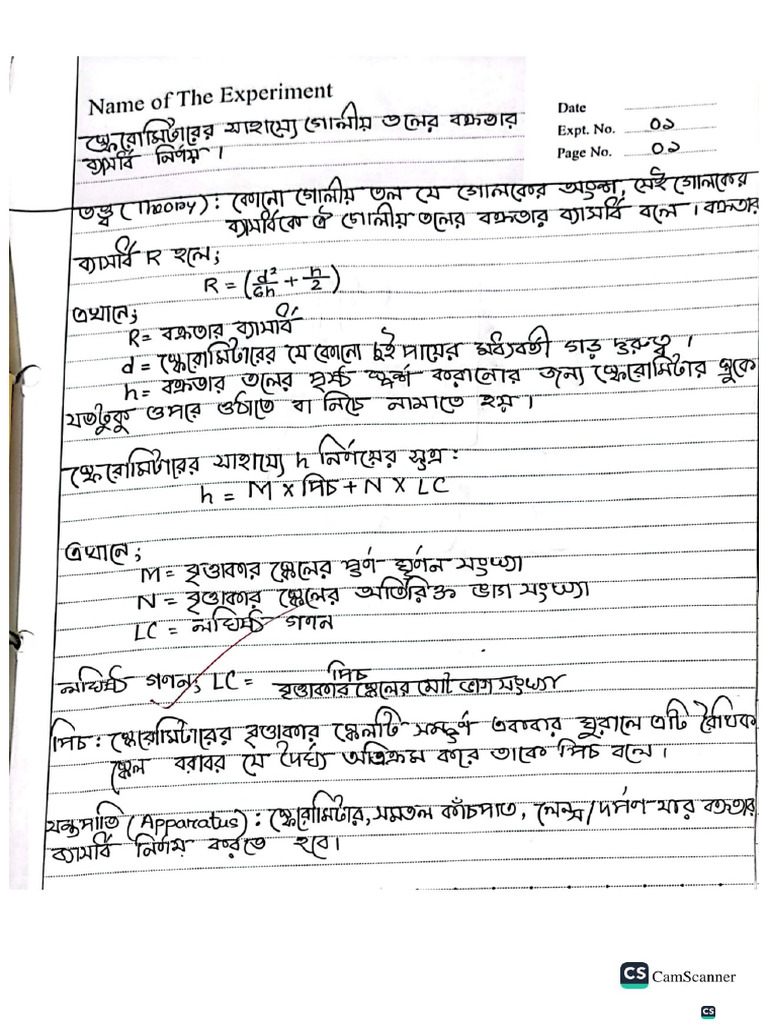 Name of The Experiment
স্ফেরোমিটারের সাহায্যে গোলীয় তলের বক্রতার
ব্যাসার্ধ নির্ণয় ।
Date
Expt. No. ০১
Page No. ০১
তত্ত্ব (Theory) : কোনো গোলীয় তল যে গোলকের অংশ, সেই গোলকের
ব্যাসার্ধকে ঐ গোলীয় তলের বক্রতার ব্যাসার্ধ বলে । বক্রতার
ব্যাসার্ধ R হলে;
R = (d²/6h + h/2)
এখানে;
R = বক্রতার ব্যাসার্ধ
d = স্ফেরোমিটারের যে কোনো দুই পায়ের মধ্যবর্তী গড় দূরত্ব ।
h = বক্রতার তলের পৃষ্ঠ স্পর্শ করানোর জন্য স্ফেরোমিটার স্ক্রুকে
যতটুকু ওপরে ওঠাতে বা নিচে নামাতে হয় ।
স্ফেরোমিটারের সাহায্যে h নির্ণয়ের সূত্র :
h = M X পিচ + N X LC
এখানে;
M = বৃত্তাকার স্কেলের পূর্ণ ঘূর্ণন সংখ্যা
N = বৃত্তাকার স্কেলের অতিরিক্ত ভাগ সংখ্যা
LC = লঘিষ্ঠ গণন
লঘিষ্ঠ গণন; LC = পিচ / বৃত্তাকার স্কেলের মোট ভাগ সংখ্যা
পিচ : স্ফেরোমিটারের বৃত্তাকার স্কেলটি সম্পূর্ণ একবার ঘুরালে এটি রৈখিক
স্কেল বরাবর যে দৈর্ঘ্য অতিক্রম করে তাকে পিচ বলে ।
যন্ত্রপাতি (Apparatus) : স্ফেরোমিটার, সমতল কাঁচপাত, লেন্স/দর্পণ যার বক্রতার
ব্যাসার্ধ নির্ণয় করতে হবে।
CS CamScanner
CS